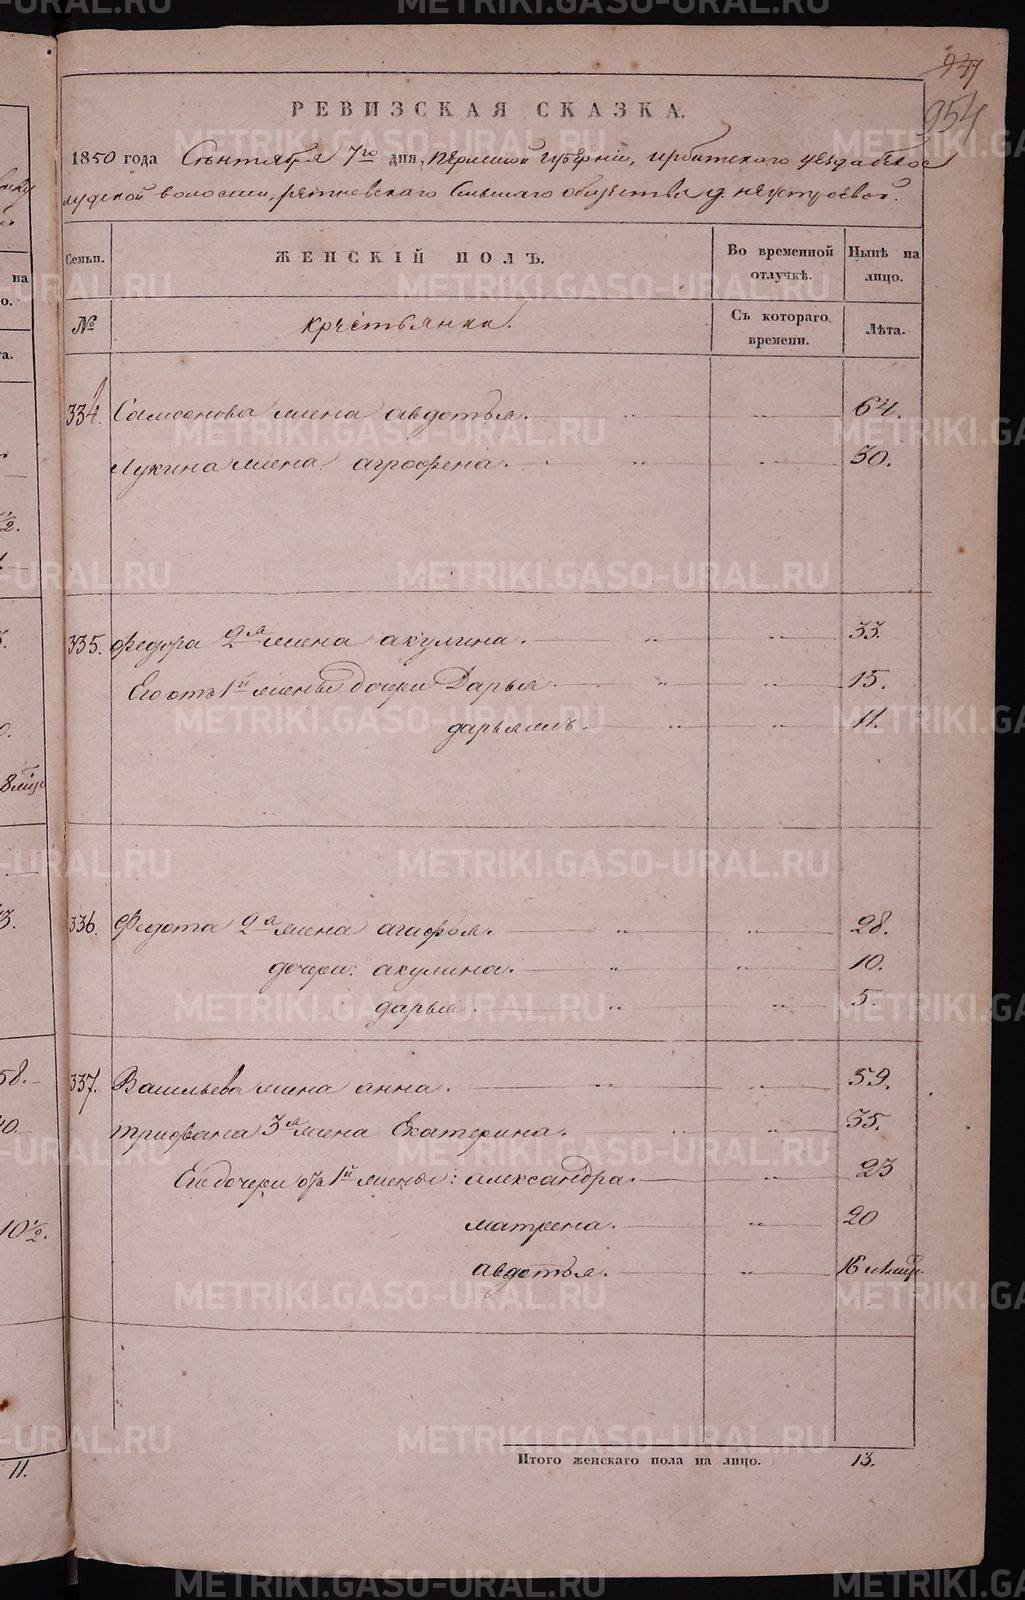 947
954
РЕВИЗСКАЯ СКАЗКА.
1850 года Сентября 7го дня, Пермской губернии, ирбитского уезда белос
лудской волости, речневского сельскаго общества д. неустроевой.
Семьи. ЖЕНСКІЙ ПОЛЪ. Во временной отлучкѣ. Нынѣ на лицо.
№ крестьянки. Съ котораго времени. Лѣта.
334. Самсонова жена авдотья. 64.
Лукина жена агрофена. 50.
335. Федора 2я жена акулина. 33.
Его отъ 1й жены дочери Дарья 15.
дарья жъ. 11.
336. Федота 2я жена агафья. 28.
дочери: акулина. 10.
дарья. 5.
337. Васильева жена анна. 59.
трифана 3я жена Екатерина. 35.
Его дочери отъ 1й жены: александра. 23
матрена. 20
авдотья. 16
Итого женскаго пола на лицо. 13.
11.
METRIKI.GASO-URAL.RU